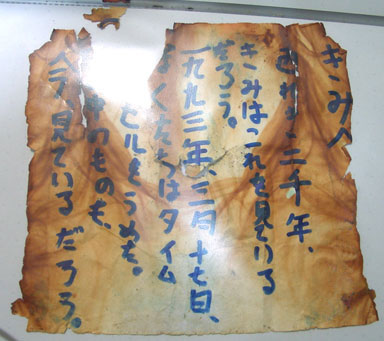 きみへ
二千年、
きみはこれを見ている
だろう。
一九九三年、三月十七日、
くたちはタイム
セルをうめた。
のものも、
見ているだろう。